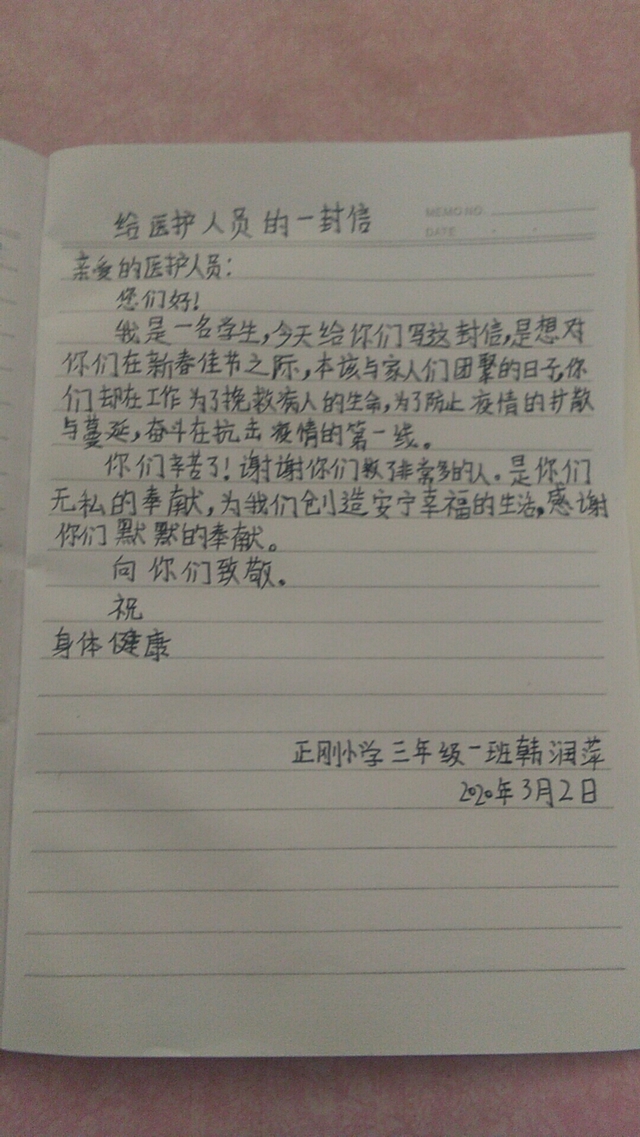 MEMO NO.
DATE
给医护人员的一封信
亲爱的医护人员：
您们好！
我是一名学生，今天给你们写这封信，是想对
你们在新春佳节之际，本该与家人们团聚的日子，你
们却在工作为了挽救病人的生命，为了防止疫情的扩散
与蔓延，奋斗在抗击疫情的第一线。
你们辛苦了！谢谢你们救了非常多的人。是你们
无私的奉献，为我们创造安宁幸福的生活，感谢
你们默默的奉献。
向你们致敬。
祝
身体健康
正刚小学三年级一班韩润萍
2020年3月2日